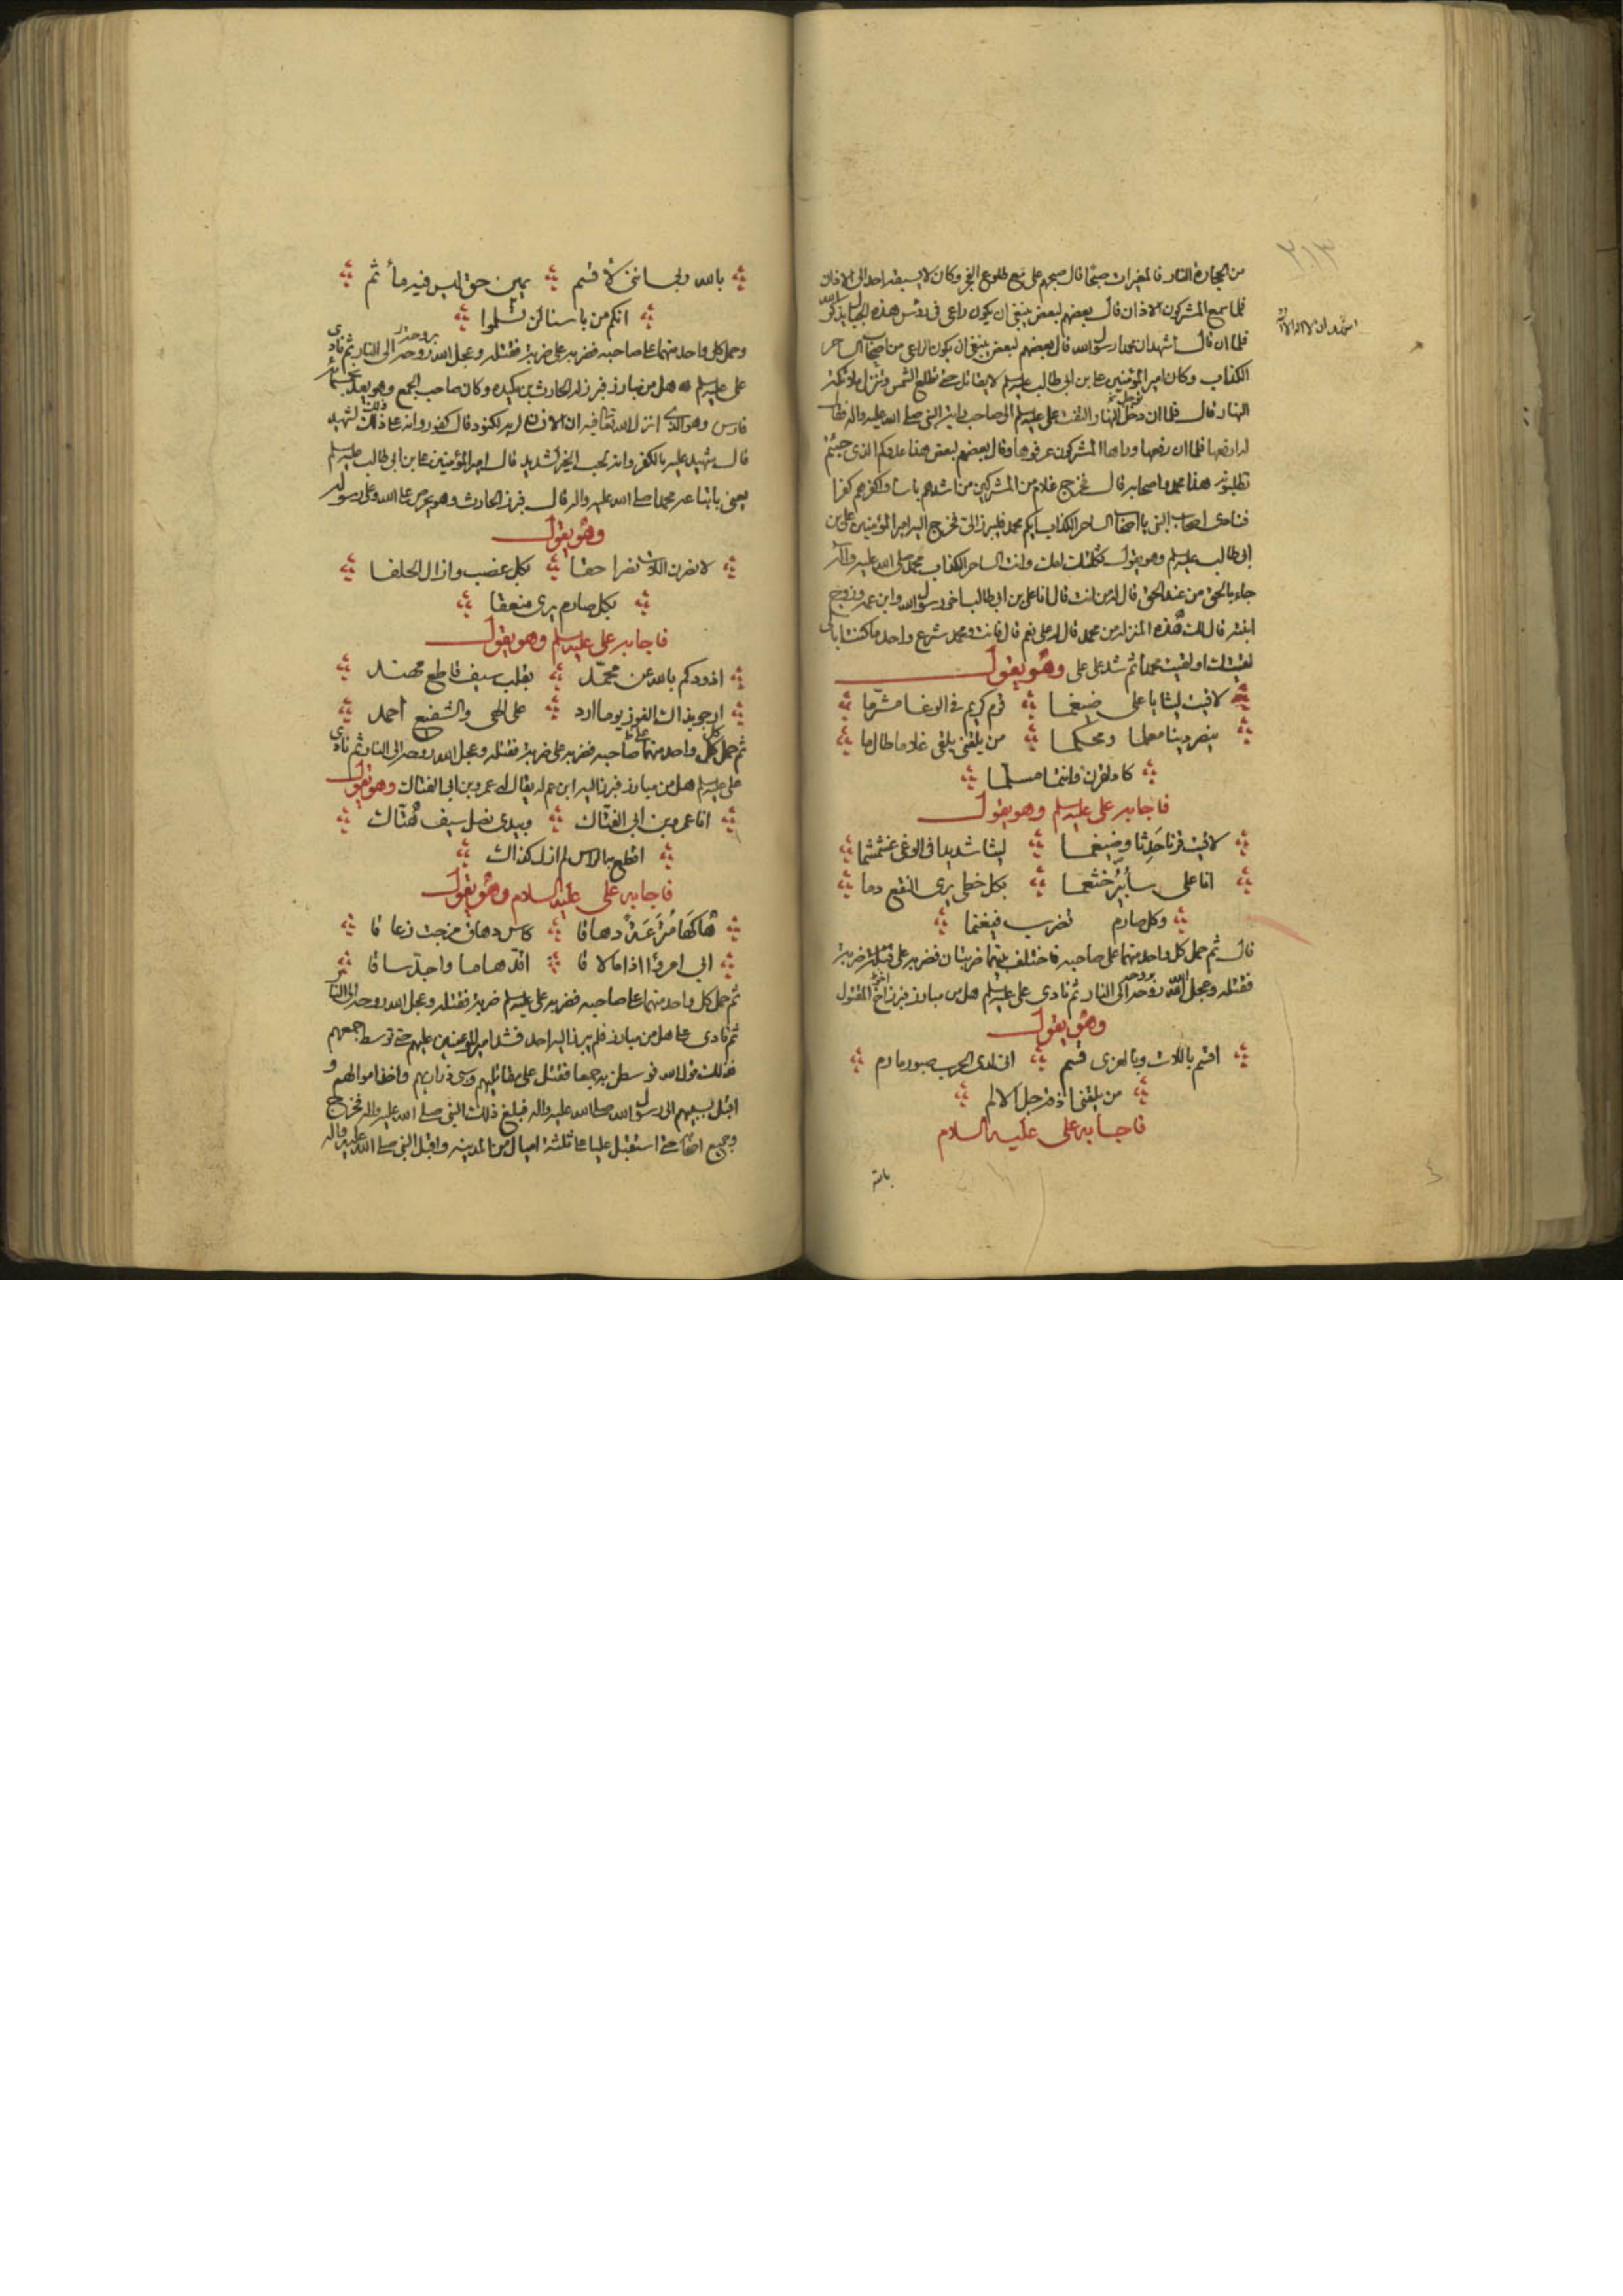 من الحجارة النار فالمغيرات صبحا قال صبحهم علي مع طلوع الفجر وكان لا يسبقه احد الى الاذان
فلما سمع المشركون الاذان قال بعضهم لبعض ينبغي ان يكون راعي في رؤس هذه الجبال يذكر الله
اشهد ان لا اله الا الله
فلما ان قال اشهد ان محمدا رسول الله قال بعضهم لبعض ينبغي ان يكون الراعي من اصحاب الساحر
الكذاب وكان امير المؤمنين علي بن ابي طالب عليه السلم لا يقاتل حتى تطلع الشمس وتنزل ملائكة
النهار قال فلما ان دخل النهار التفت علي عليه السلم الى صاحب راية النبي صلى الله عليه واله فقال
له ارفعها فلما ان رفعها وراها المشركون عرفوها وقال بعضهم لبعض هذا عدوكم الذي جئتم
تطلبونه هذا محمد واصحابه قال فخرج غلام من المشركين من اشدهم باسا واكفرهم كفرا
فنادى اصحاب النبي يا اصحاب الساحر الكذاب ايكم محمد فليبرز الي فخرج اليه امير المؤمنين علي بن
ابي طالب عليه السلم وهو يقول ثكلتك امك وانت الساحر الكذاب محمد صلى الله عليه واله
جاء بالحق من عند الحق قال له من انت قال انا علي بن ابي طالب اخي رسول الله وابن عمه وزوج
ابنته قال لك هذه المنزلة من محمد قال له علي نعم قال فانت ومحمد شرع واحد ما كنت ابالي
لقيتك او لقيت محمدا ثم شد على علي وهو يقول
لاقيت ليثا يا علي ضيغما قرم كريم في الوغا مشرما
ينصر دينا معلما ومحكما من يلقني يلقى غلاما طال ما
كاد لقرن وانتما مسلما
فاجابه علي عليه السلم وهو يقول
لاقيت قرنا حدثا وضيغما ليثا شديدا في الوغى غشمشما
انا علي سأبير خثعما بكل خطي يرى النقع دما
وكل صارم تضرب فيغنما
قال ثم حمل كل واحد منهما على صاحبه فاختلف بينهما ضربتان فضربه علي ضربة
فقتله وعجل الله بروحه الى النار ثم نادى علي عليه السلم هل من مبارز فبرز اخ المقتول
وهو يقول
اقسم باللات وبالعزى قسم اني لدى الحرب صبور مارم
من يلقني اذقه رجل الالم
فاجابه علي عليه السلام
بالله
بالله ربي انني لأقسم يمين حق ليس فيه مأثم
انكم من باسنا لن تسلموا
وحمل كل واحد منهما على صاحبه فضربه علي ضربة فقتله وعجل الله بروحه الى النار ثم نادى
علي عليه السلم هل من مبارز فبرز له الحارث بن مكيدة وكان صاحب الجمع وهو يعد بخمسمائة
فارس وهو الذي انزل الله تعالى فيه ان الانسان لربه لكنود قال كفور وانه على ذلك لشهيد
قال شهيد عليه بالكفر وانه لحب الخير لشديد قال امير المؤمنين علي بن ابي طالب عليه السلم
يعني باتباعه محمدا صلى الله عليه واله قال فبرز الحارث وهو يحرض على الله وعلى رسوله
وهو يقول
لانصرن اللات نصرا حقا بكل عضب وازال الحلقا
بكل صارم يرى منعقا
فاجابه علي عليه السلم وهو يقول
اذودكم بالله عن محمد بقلب سيف قاطع مهند
ارجو بذاك الفوز يوما ارد على الهي والشفيع احمد
ثم حمل كل واحد منهما على صاحبه فضربه علي ضربة فقتله وعجل الله بروحه الى النار ثم نادى
علي عليه السلم هل من مبارز فبرز اليه ابن عم له يقال له عمرو بن ابي الفتاك وهو يقول
انا عمرو بن ابي الفتاك وبيدي نصل سيف هتاك
اقطع به الراس لم ازل كذاك
فاجابه علي عليه السلام وهو يقول
هاكها مترعة دهاقا كاس دهاق مزجت زعاقا
اني امرؤ اذا ما لاقا اقد هاما واجذ ساقا
ثم حمل كل واحد منهما على صاحبه فضربه علي عليه السلم ضربة فقتله وعجل الله بروحه الى النار
ثم نادى علي هل من مبارز فلم يبرز اليه احد فشد امير المؤمنين عليهم حتى توسط جمعهم
فذلك قول الله فوسطن به جمعا فقتل علي مقاتليهم وسبى ذراريهم واخذ اموالهم و
اقبل بسبيهم الى رسول الله صلى الله عليه واله فبلغ ذلك النبي صلى الله عليه واله فخرج
وجميع اصحابه حتى استقبل عليا على ثلثة اميال من المدينة واقبل النبي صلى الله عليه واله